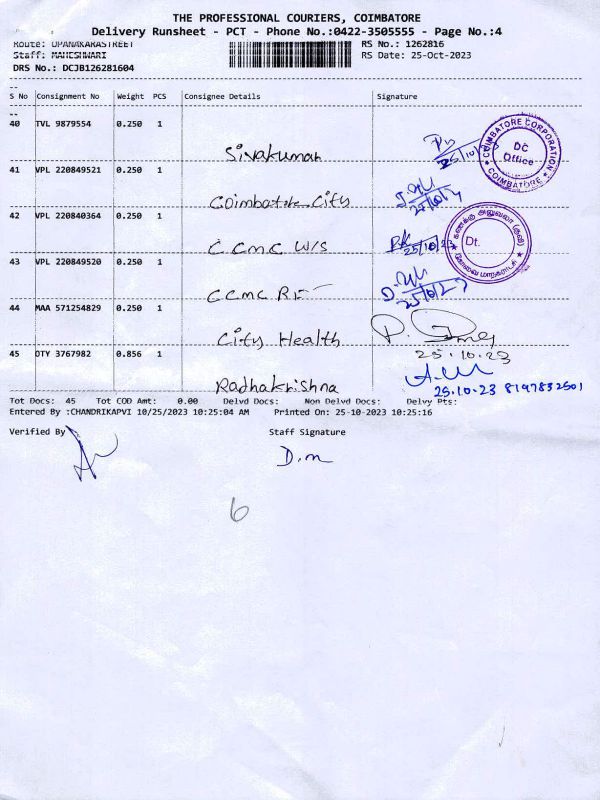 THE PROFESSIONAL COURIERS, COIMBATORE
Delivery Runsheet - PCT - Phone No.:0422-3505555 - Page No.:4
Route: UPANAKARASTREET
RS No.: 1262816
Staff: MAHESHWARI
RS Date: 25-Oct-2023
DRS No.: DCJB126281604
S No Consignment No Weight PCS Consignee Details Signature
40 TVL 9879554 0.250 1
Sivakumar
25/10
COIMBATORE CORPORATION
DC
Office
COIMBATORE
41 VPL 220849521 0.250 1
Coimbatore City
25/10/
42 VPL 220840364 0.250 1
CCMC W/S
25/10/23
கணக்கு அலுவலர்
Dt.
கோவை மாநகராட்சி
43 VPL 220849520 0.250 1
CCMC
25/10/23
44 MAA 571254829 0.250 1
City Health
25.10.23
45 OTY 3767982 0.856 1
Radhakrishna
25.10.23 8197832501
Tot Docs: 45 Tot COD Amt: 0.00 Delvd Docs: Non Delvd Docs: Delvy Pts:
Entered By :CHANDRIKAPVI 10/25/2023 10:25:04 AM Printed On: 25-10-2023 10:25:16
Verified By
Staff Signature
D.m
6